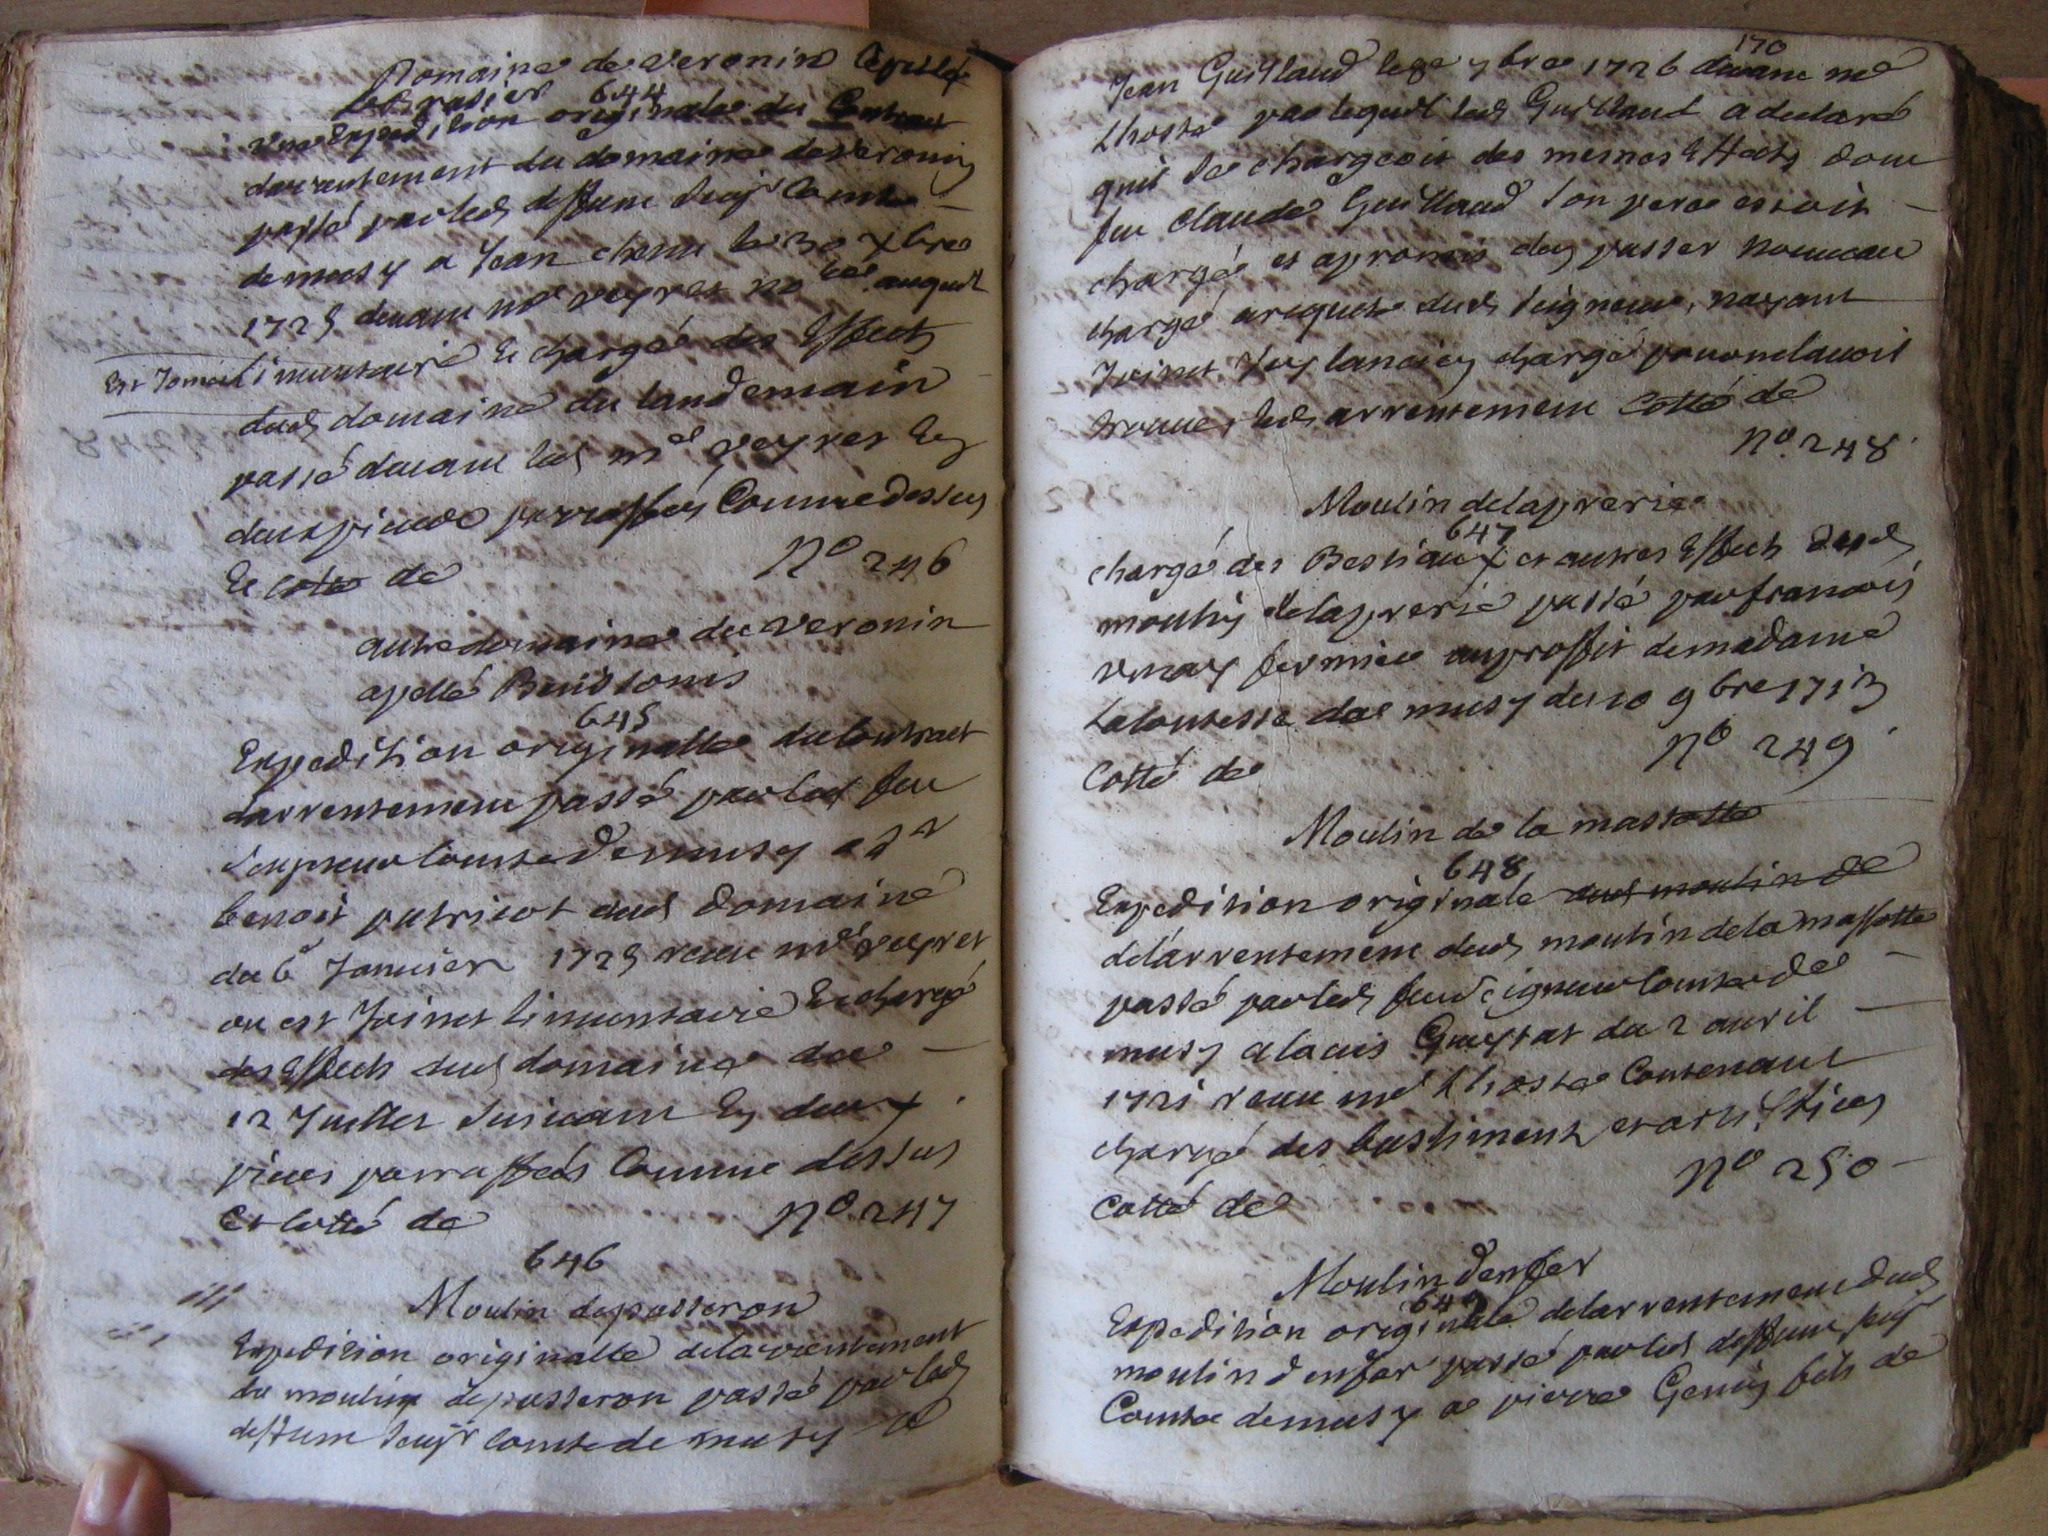 Domaine de Veronin Apellé
le Brasier
644
Une Expedition originale du Contract
darrentement du domaine de Veronin
passé par led deffunt seigr Comte
de musy a Jean chenu le 30 xbre
1725 devant me veyret no.re auquel
Est Joinct linventaire Et chargé des Effects
dud domaine du landemain
passé devant led me veyret En
deux pieces parraffées Comme dessus
Et cotté de No 246
autre domaine de Veronin
apellé Buissonis
645
Expedition originalle du Contract
darrentement passé par led feu
seigneur Comte de musy a sr
benoit patricot dud domaine
du 6e Janvier 1725 receu me veyret
ou est Joinct linventaire Et chargé
des Effects dud domaine du
12 Juillet suivant En deux
pieces parraffées Comme dessus
Et Cotté de No 247
646
Moulin de passeron
Expedition originalle delarrentement
du moulin de passeron passé par led
deffunt seigr Comte de musy a
170
Jean Guillaud le 7bre 1726 devant me
Lhoste par lequel led Guillaud a declaré
quil se chargeoit des mesmes Effects dont
feu Claude Guillaud son pere estoit
chargé et a promis den passer nouveau
chargé a requeste dud seigneur, nayant
Joinct Icy lancien chargé pour ne lavoir
trouvé, led arrentement Cotté de
No. 248
Moulin de la prerie
647
chargé des Bestiaux et autres Effects dud
moulin de la prerie passé par francois
vinay fermier au proffit de madame
La Contesse de musy du 10 9bre 1713
Cotté de No 249
Moulin de la massotte
648
Expedition originale dud moulin de
delarrentement dud moulin de la massotte
passé par led feu seigneur Comte de
musy a Louis Gueyrat du 2 avril
1721 receu me Lhoste Contenant
chargé des bastiments et artiffices
Cotté de No 250
Moulin denfer
649
Expedition originale delarrentement dud
moulin denfer passé par led deffunt seigr
Comte de musy a pierre Genin fils de